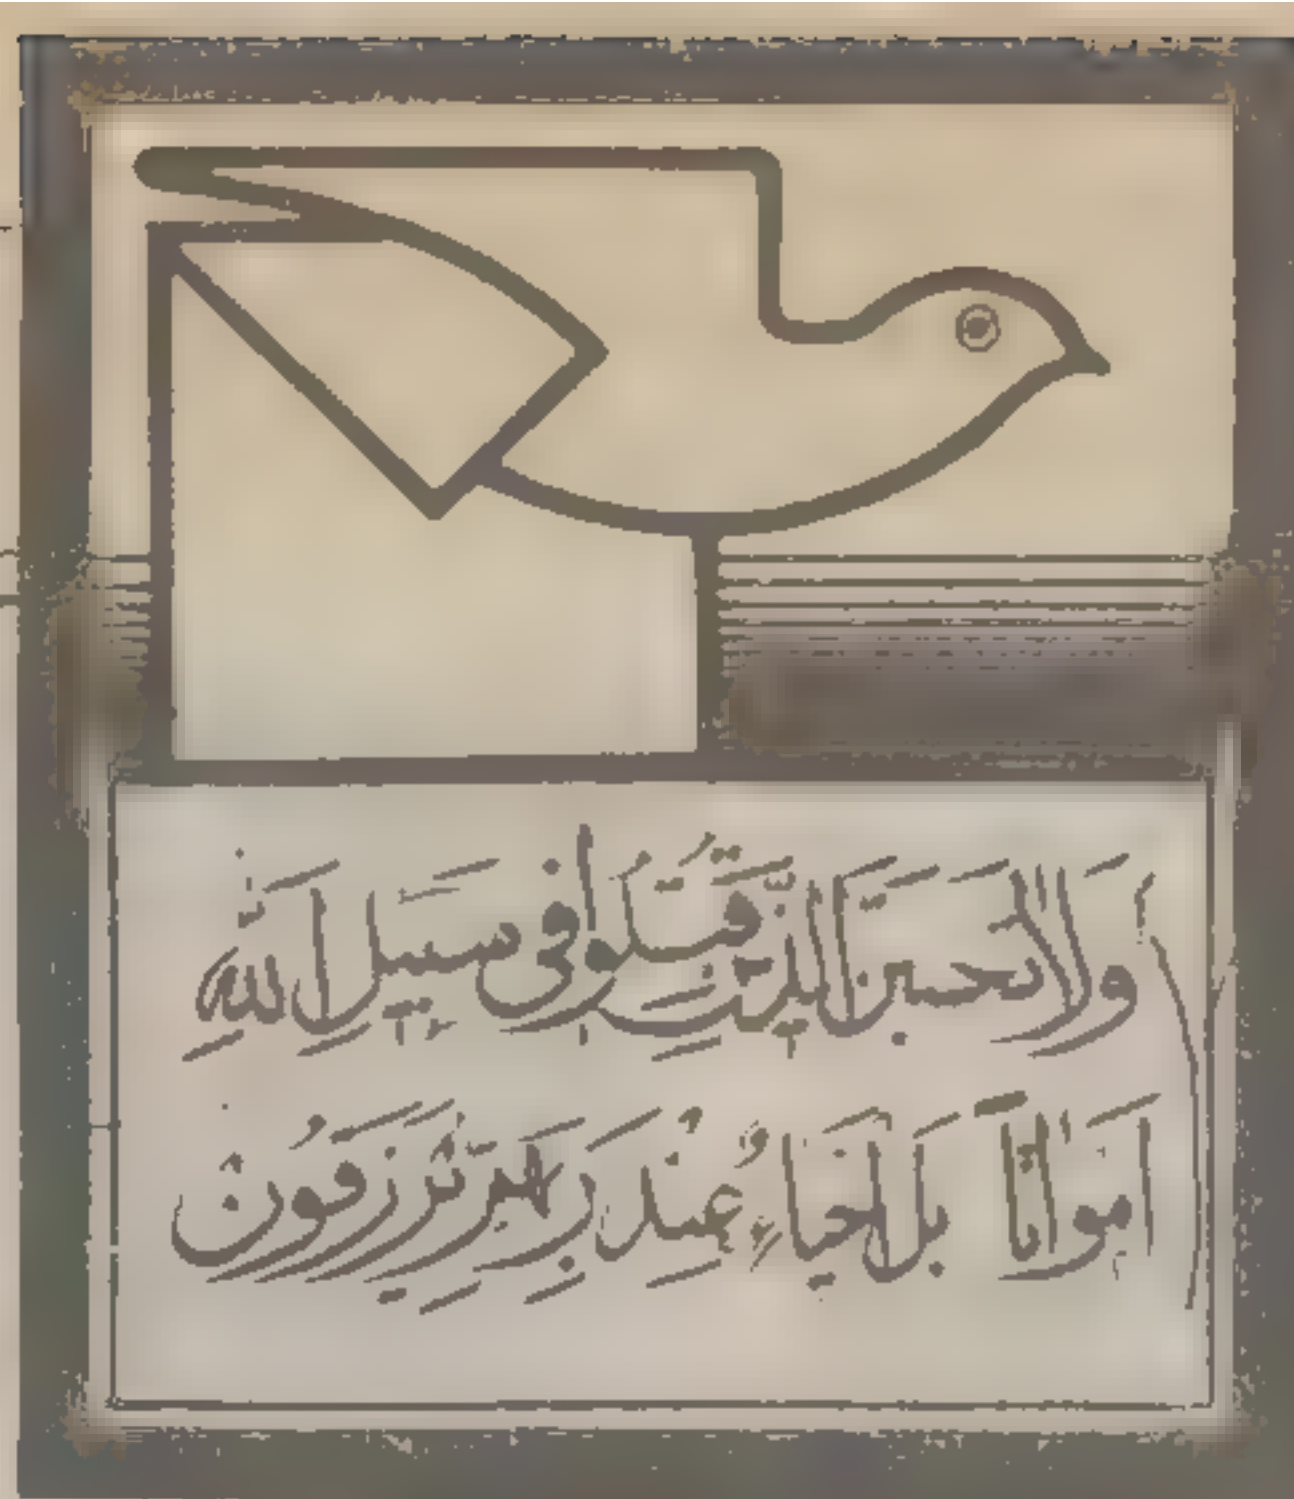 وَلَا تَحْسَبَنَّ الَّذِينَ قُتِلُوا فِي سَبِيلِ اللَّهِ
أَمْوَاتًا بَلْ أَحْيَاءٌ عِنْدَ رَبِّهِمْ يُرْزَقُونَ